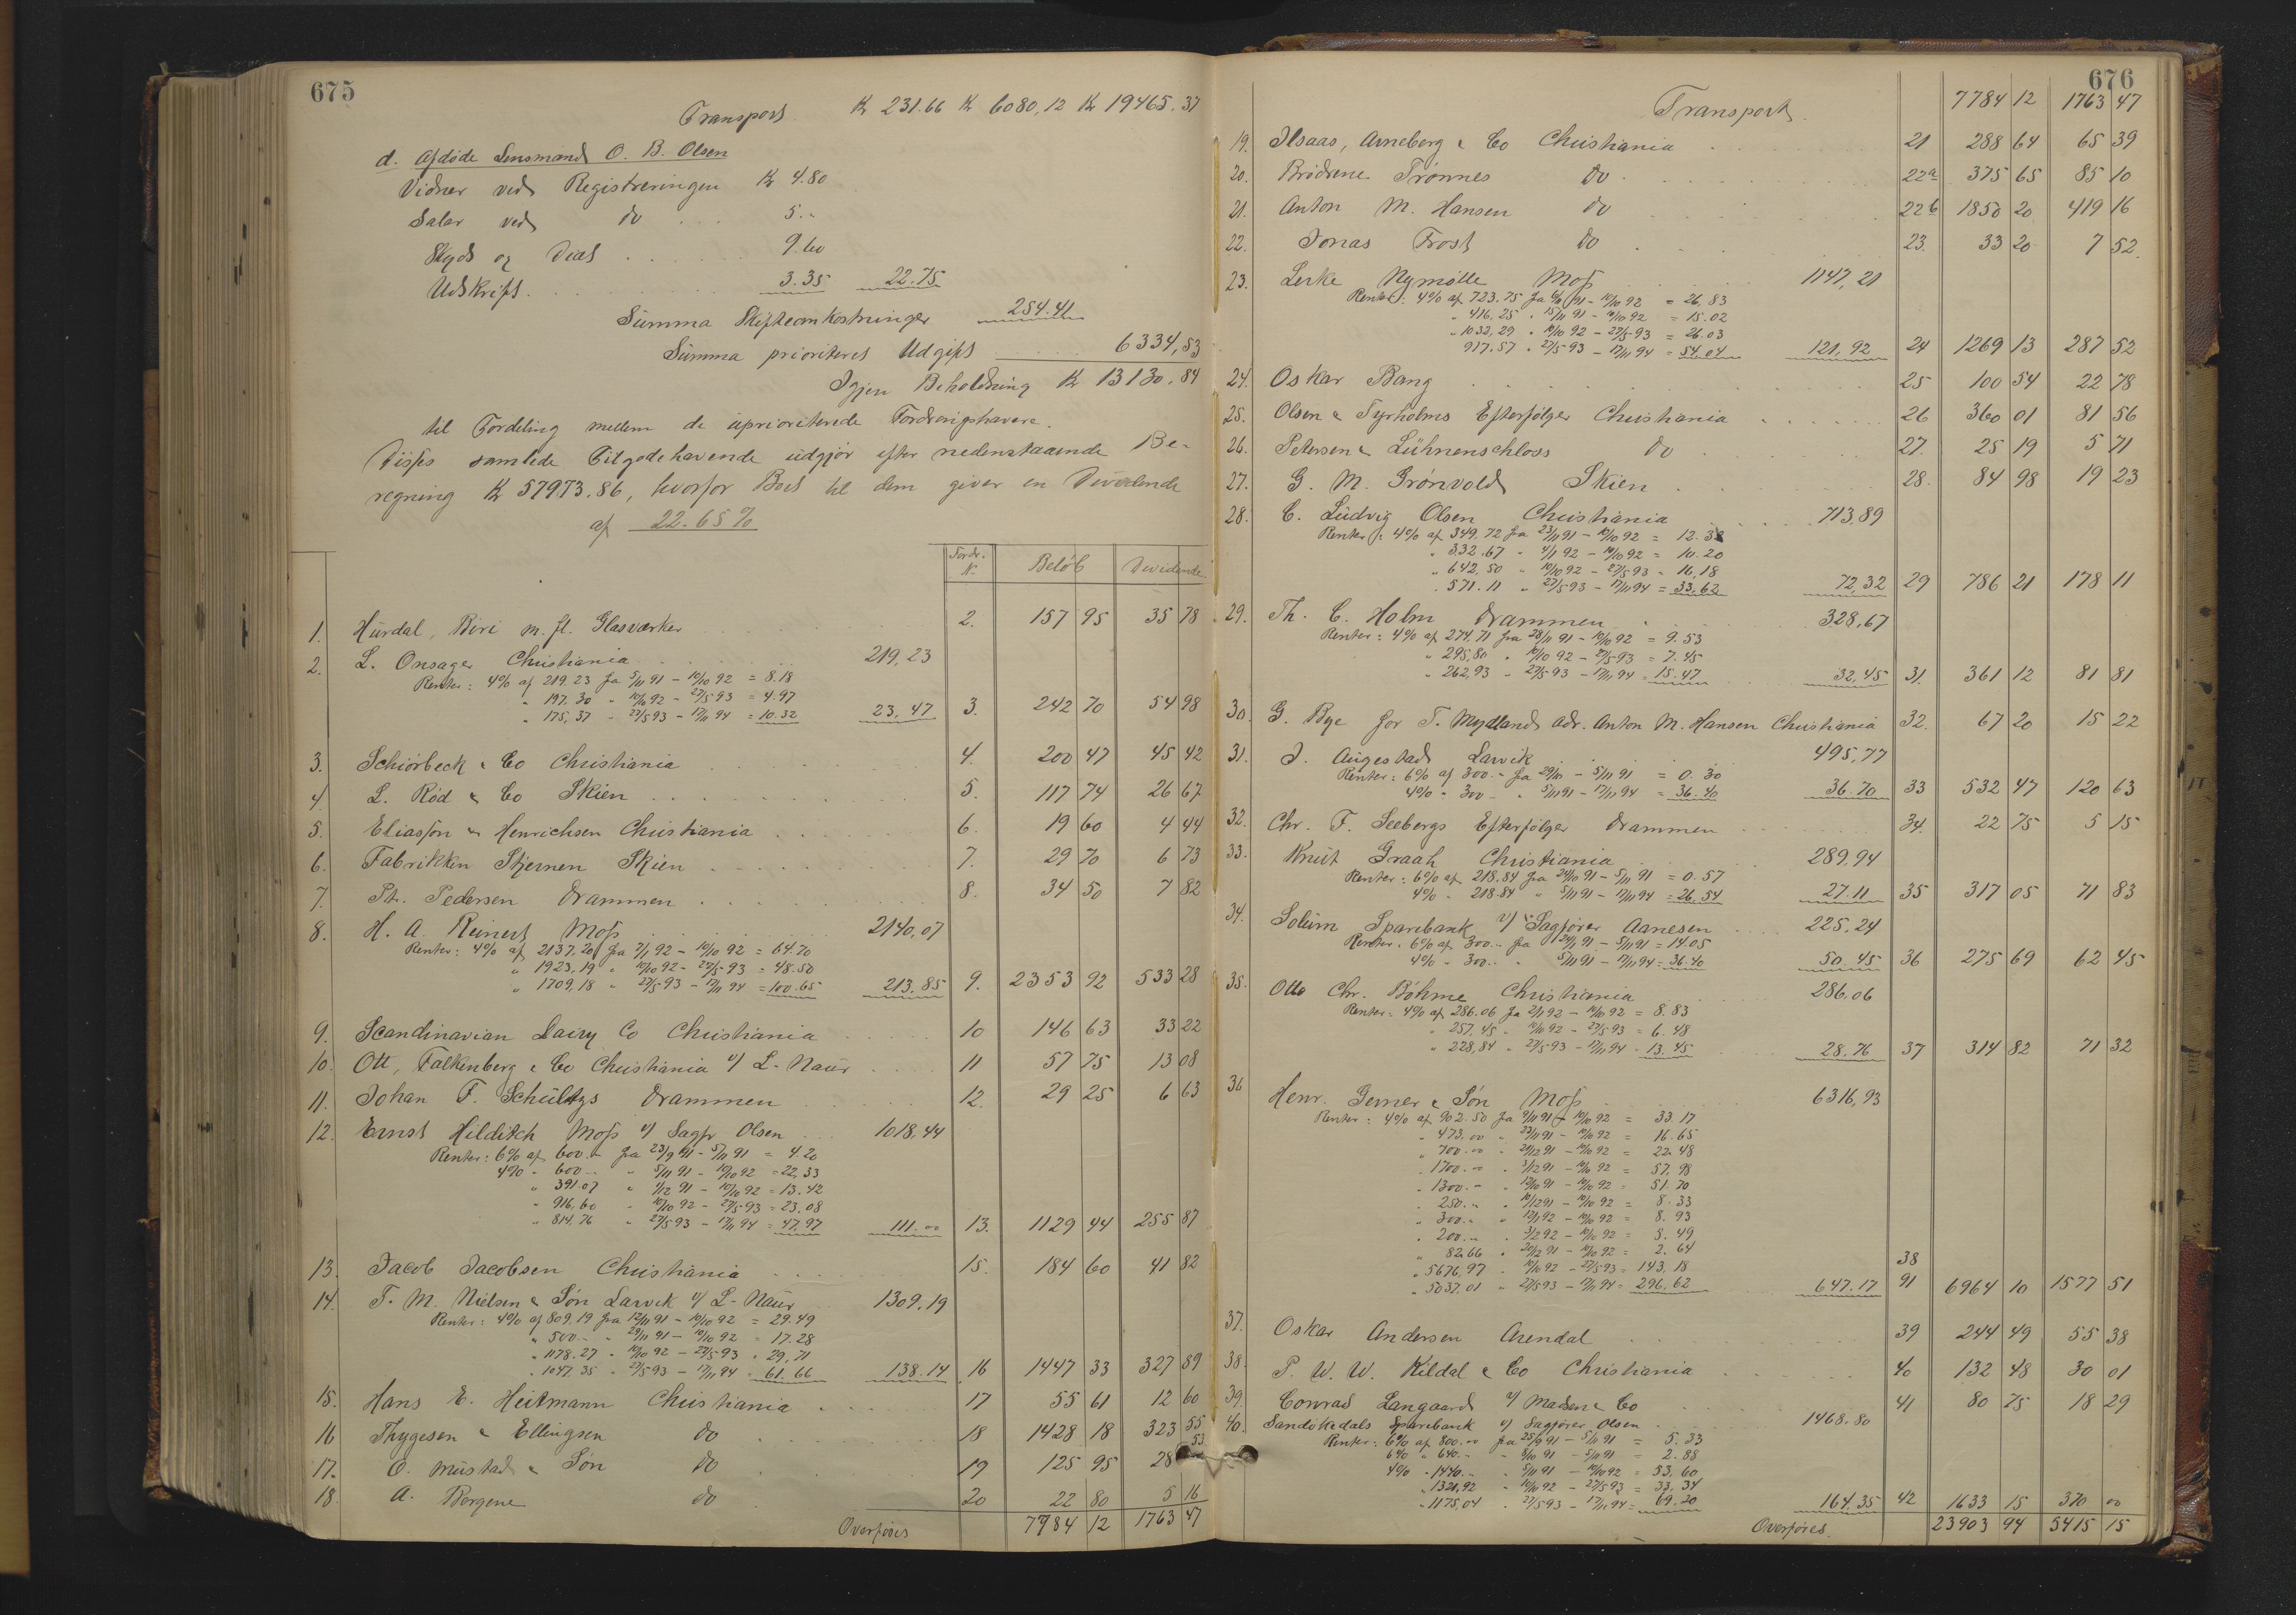 675
Transport Kr 231.66 Kr 6080,12 Kr 19465.37
d. Afdøde Lensmand O. B. Olsen
Vidner ved Registreringen Kr 4.80
Salær ved do . . . 5.-
Skyds og Diæt . . . . . 9.60
Udskrift . . . . . . . 3.35 22.75
Summa Skifteomkostninger 254.41
Summa prioriteret Udgift 6334,53
Igjen Beholdning Kr 13130.84
til Fordeling mellem de uprioriterede Fordringshavere.
Disses samlede Tilgodehavende udgjør efter nedenstaaende Be-
regning Kr 57973.86, hvorfor Boet til dem giver en Dividende
af 22.65 %
Fordr. N. Beløb Dividende
1. Hurdal, Biri m. fl. Glasværker 2. 157 95 35 78
2. L. Onsager Christiania 219,23
Renter: 4% af 219.23 fra 5/11 91 - 10/10 92 = 8.18
" 197.30 " 10/10 92 - 27/5 93 = 4.97
" 175,37 " 27/5 93 - 17/11 94 = 10.32 23,47 3. 242 70 54 98
3. Schiørbeck & Co Christiania 4. 200 47 45 42
4. L. Rød & Co Skien 5. 117 74 26 67
5. Eliasson & Henrichsen Christiania 6. 19 60 4 44
6. Fabrikken Stjernen Skien 7. 29 70 6 73
7. Th. Pedersen Drammen 8. 34 50 7 82
8. H. A. Reinert Moss 2140,07
Renter: 4% af 2137,20 fra 7/1 92 - 10/10 92 = 64.70
" 1923,19 " 10/10 92 - 27/5 93 = 48.50
" 1709,18 " 27/5 93 - 17/11 94 = 100.65 213.85 9. 2353 92 533 28
9. Scandinavian Dairy Co Christiania 10 146 63 33 22
10. Ott, Falkenberg & Co Christiania v/ L. Naur 11 57 75 13 08
11. Johan F. Schültzs Drammen 12. 29 25 6 63
12. Ernst Hilditch Moss v/ Sagfr. Olsen 1018,44
Renter: 6% af 600.- fra 23/9 91 - 5/11 91 = 4.20
4% " 600.- " 5/11 91 - 10/10 92 = 22,33
" 391.07 " 1/12 91 - 10/10 92 = 13.42
" 916,60 " 10/10 92 - 27/5 93 = 23.08
" 814.76 " 27/5 93 - 17/11 94 = 47.97 111.00 13. 1129 44 255 87
13. Jacob Jacobsen Christiania 15. 184 60 41 82
14. T. M. Nielsen & Søn Larvik v/ L. Naur 1309.19
Renter: 4% af 809.19 fra 12/11 91 - 10/10 92 = 29.49
" 500.- " 29/11 91 - 10/10 92 = 17.28
" 1178.27 " 10/10 92 - 27/5 93 " 29,71
" 1047.35 " 27/5 93 - 17/11 94 " 61.66 138.14 16 1447 33 327 89
15. Hans E. Heitmann Christiania 17 55 61 12 60
16 Thygesen & Ellingsen do 18 1428 18 323 55
17. O. Mustad & Søn do 19 125 95 28 53
18. A. Borgene do 20 22 80 5 16
Overføres 7784 12 1763 47
676
Transport 7784 12 1763 47
19. Ilsaas, Arneberg & Co Christiania 21 288 64 65 39
20. Brødrene Trønnes do 22a 375 65 85 10
21. Anton M. Hansen do 22b 1850 20 419 16
22. Jonas Frost do 23. 33 20 7 52
23. Lerke Nymølle Moss 1147,21
Renter: 4% af 723.75 fra 91 - 10/10 92 = 26,83
" 416,25 " 15/11 91 - 10/10 92 = 15.02
" 1032,29 " 10/10 92 - 27/5 93 = 26.03
917.57 " 27/5 93 - 17/11 94 = 54.04 121,92 24 1269 13 287 52
24. Oskar Bang 25 100 54 22 78
25. Olsen & Tyrholms Efterfølger Christiania 26 360 01 81 56
26. Petersen & Lühnenschloss do 27. 25 19 5 71
27. G. M. Grønvold Skien 28. 84 98 19 23
28. C. Ludvig Olsen Christiania 713,89
Renter: 4% af 349.72 fra 23/11 91 - 10/10 92 = 12.32
" 332.67 " 4/1 92 - 10/10 92 = 10.20
" 642,50 " 10/10 92 - 27/5 93 = 16,18
" 571.11 " 27/5 93 - 17/11 94 = 33,62 72,32 29 786 21 178 11
29. Th. C. Holm Drammen 328,67
Renter: 4% af 274.71 fra 28/11 91 - 10/10 92 = 9.53
" 295,80 " 10/10 92 - 27/5 93 = 7.45
" 262,93 " 27/5 93 - 17/11 94 = 15.47 32,45 31. 361 12 81 81
30. G. Bye for T. Mydland adr. Anton M. Hansen Christiania 32. 67 20 15 22
31. J. Augestad Larvik 495,77
Renter: 6% af 300.- fra 29/10 - 5/11 91 = 0.30
4% " 300.- " 5/11 91 - 17/11 94 = 36.40 36.70 33 532 47 120 63
32. Chr. F. Seebergs Efterfølger Drammen 34. 22 75 5 15
33. Knut Graah Christiania 289.94
Renter: 6% af 218.84 fra 24/10 91 - 5/11 91 = 0.57
4% " 218.84 " 5/11 91 - 17/11 94 = 26.54 27.11 35 317 05 71 83
34. Solum Sparebank v/ Sagfører Aanesen 225.24
Renter: 6% af 300.- fra 24/1 91 - 5/11 91 = 14.05
4% " 300.- " 5/11 91 - 17/11 94 = 36.40 50.45 36 275 69 62 45
35. Otto Chr. Böhme Christiania 286.06
Renter: 4% af 286.06 fra 2/1 92 - 10/10 92 = 8.83
" 257.45 " 10/10 92 - 27/5 93 = 6.48
" 228,84 " 27/5 93 - 17/11 94 = 13.45 28.76 37 314 82 71 32
36 Henr. Gerner & Søn Moss 6316,93
Renter: 4% af 902.50 fra 9/11 91 - 10/10 92 = 33.17
" 473.00 " 23/11 91 - 10/10 92 = 16.65
" 700.00 " 20/12 91 - 10/10 92 = 22.48
" 1700.00 " 3/12 91 - 10/10 92 = 57.98
" 1300.- " 12/10 91 - 10/10 92 = 51.70
" 250.- " 10/12 91 - 10/10 92 = 8.33
" 300.- " 12/1 92 - 10/10 92 = 8.93
" 200.- " 3/2 92 - 10/10 92 = 5.49
" 82.66 " 20/12 91 - 10/10 92 = 2.64 38
" 5676,97 " 10/10 92 - 27/5 93 = 143.18
" 5037.01 " 27/5 93 - 17/11 94 = 296.62 647.17 91 6964 10 1577 51
37. Oskar Andersen Arendal 39 244 49 55 38
38. P. W. W. Kildal & Co Christiania 40 132 48 30 01
39. Conrad Langaard v/ Madsen & Co 41 80 75 18 29
40. Sandökedals Sparebank v/ Sagfører Olsen 1468.80
Renter: 6% af 800.00 fra 25/9 91 - 5/11 91 = 5.33
6% " 640.- " 8/10 91 - 5/11 91 = 2.88
4% " 1440.- " 5/11 91 - 10/10 92 = 53.60
" 1321,92 " 10/10 92 - 27/5 93 = 33.34
" 1175,04 " 27/5 93 - 17/11 94 = 69.20 164,35 42 1633 15 370 00
Overføres. 23903 94 5415 15